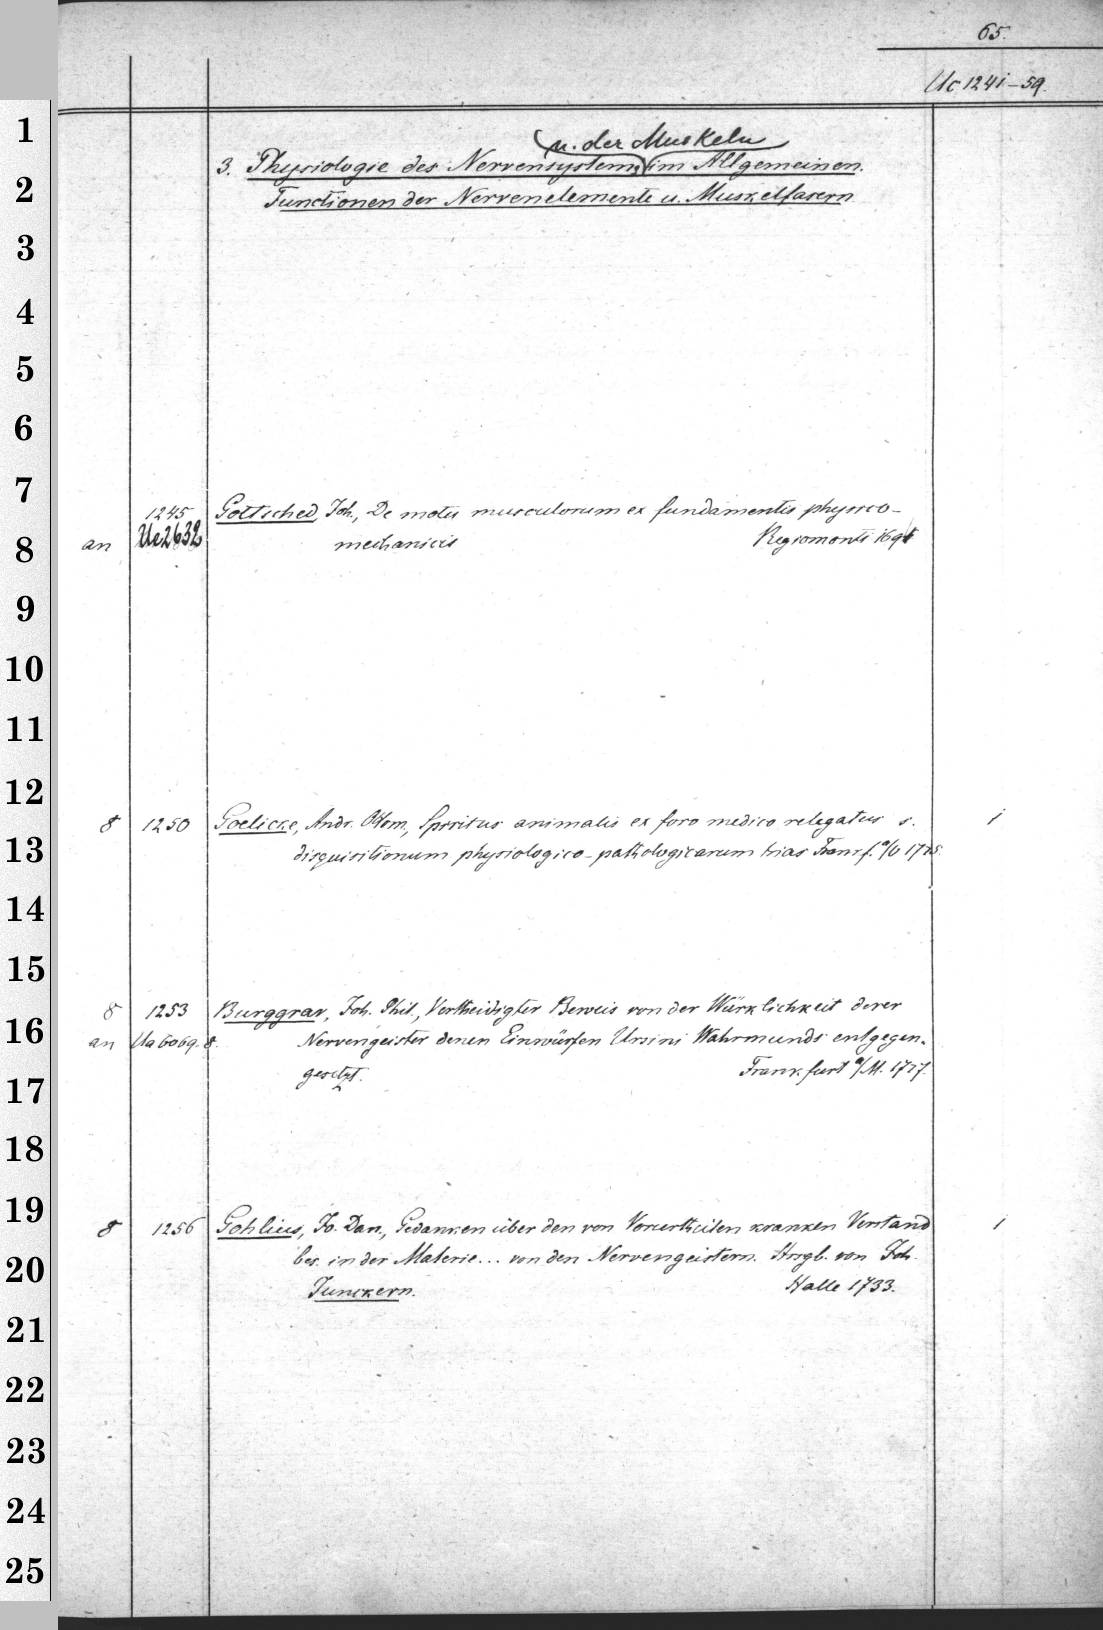 65.
Uc 1241-59.
u. der Muskeln
3. Physiologie des Nervensystems im Allgemeinen.
Functionen der Nervenelemente u. Muskelfasern
1
2
3
4
5
6
7
1245 Gottsched, Joh., De motu musculorum ex fundamentis physico-
8
an Ue2632 mechanicis Regiomonti 169
9
10
11
12
8 1250 Goelicke, Andr. Ottom., Spiritus animalis ex foro medico relegatus s. i
13
disquisitionum physiologico-pathologicarum trias Francf. a/O 1725.
14
15
8 1253 Burggrav, Joh. Phil., Vertheidigter Beweis von der Würklichkeit derer
16
an Ua 6069. 8. Nervengeister denen Einwürfen Ursini Wahrmunds entgegen-
17
gesetzt. Frankfurt a/M. 1727.
18
19
8 1256 Gohlius, Jo. Dan., Gedanken über den von Vorurtheilen kranken Verstand i
20
bes. in der Materie... von den Nervengeistern. Hrsgb. von Joh.
Junckern. Halle 1733.
21
22
23
24
25